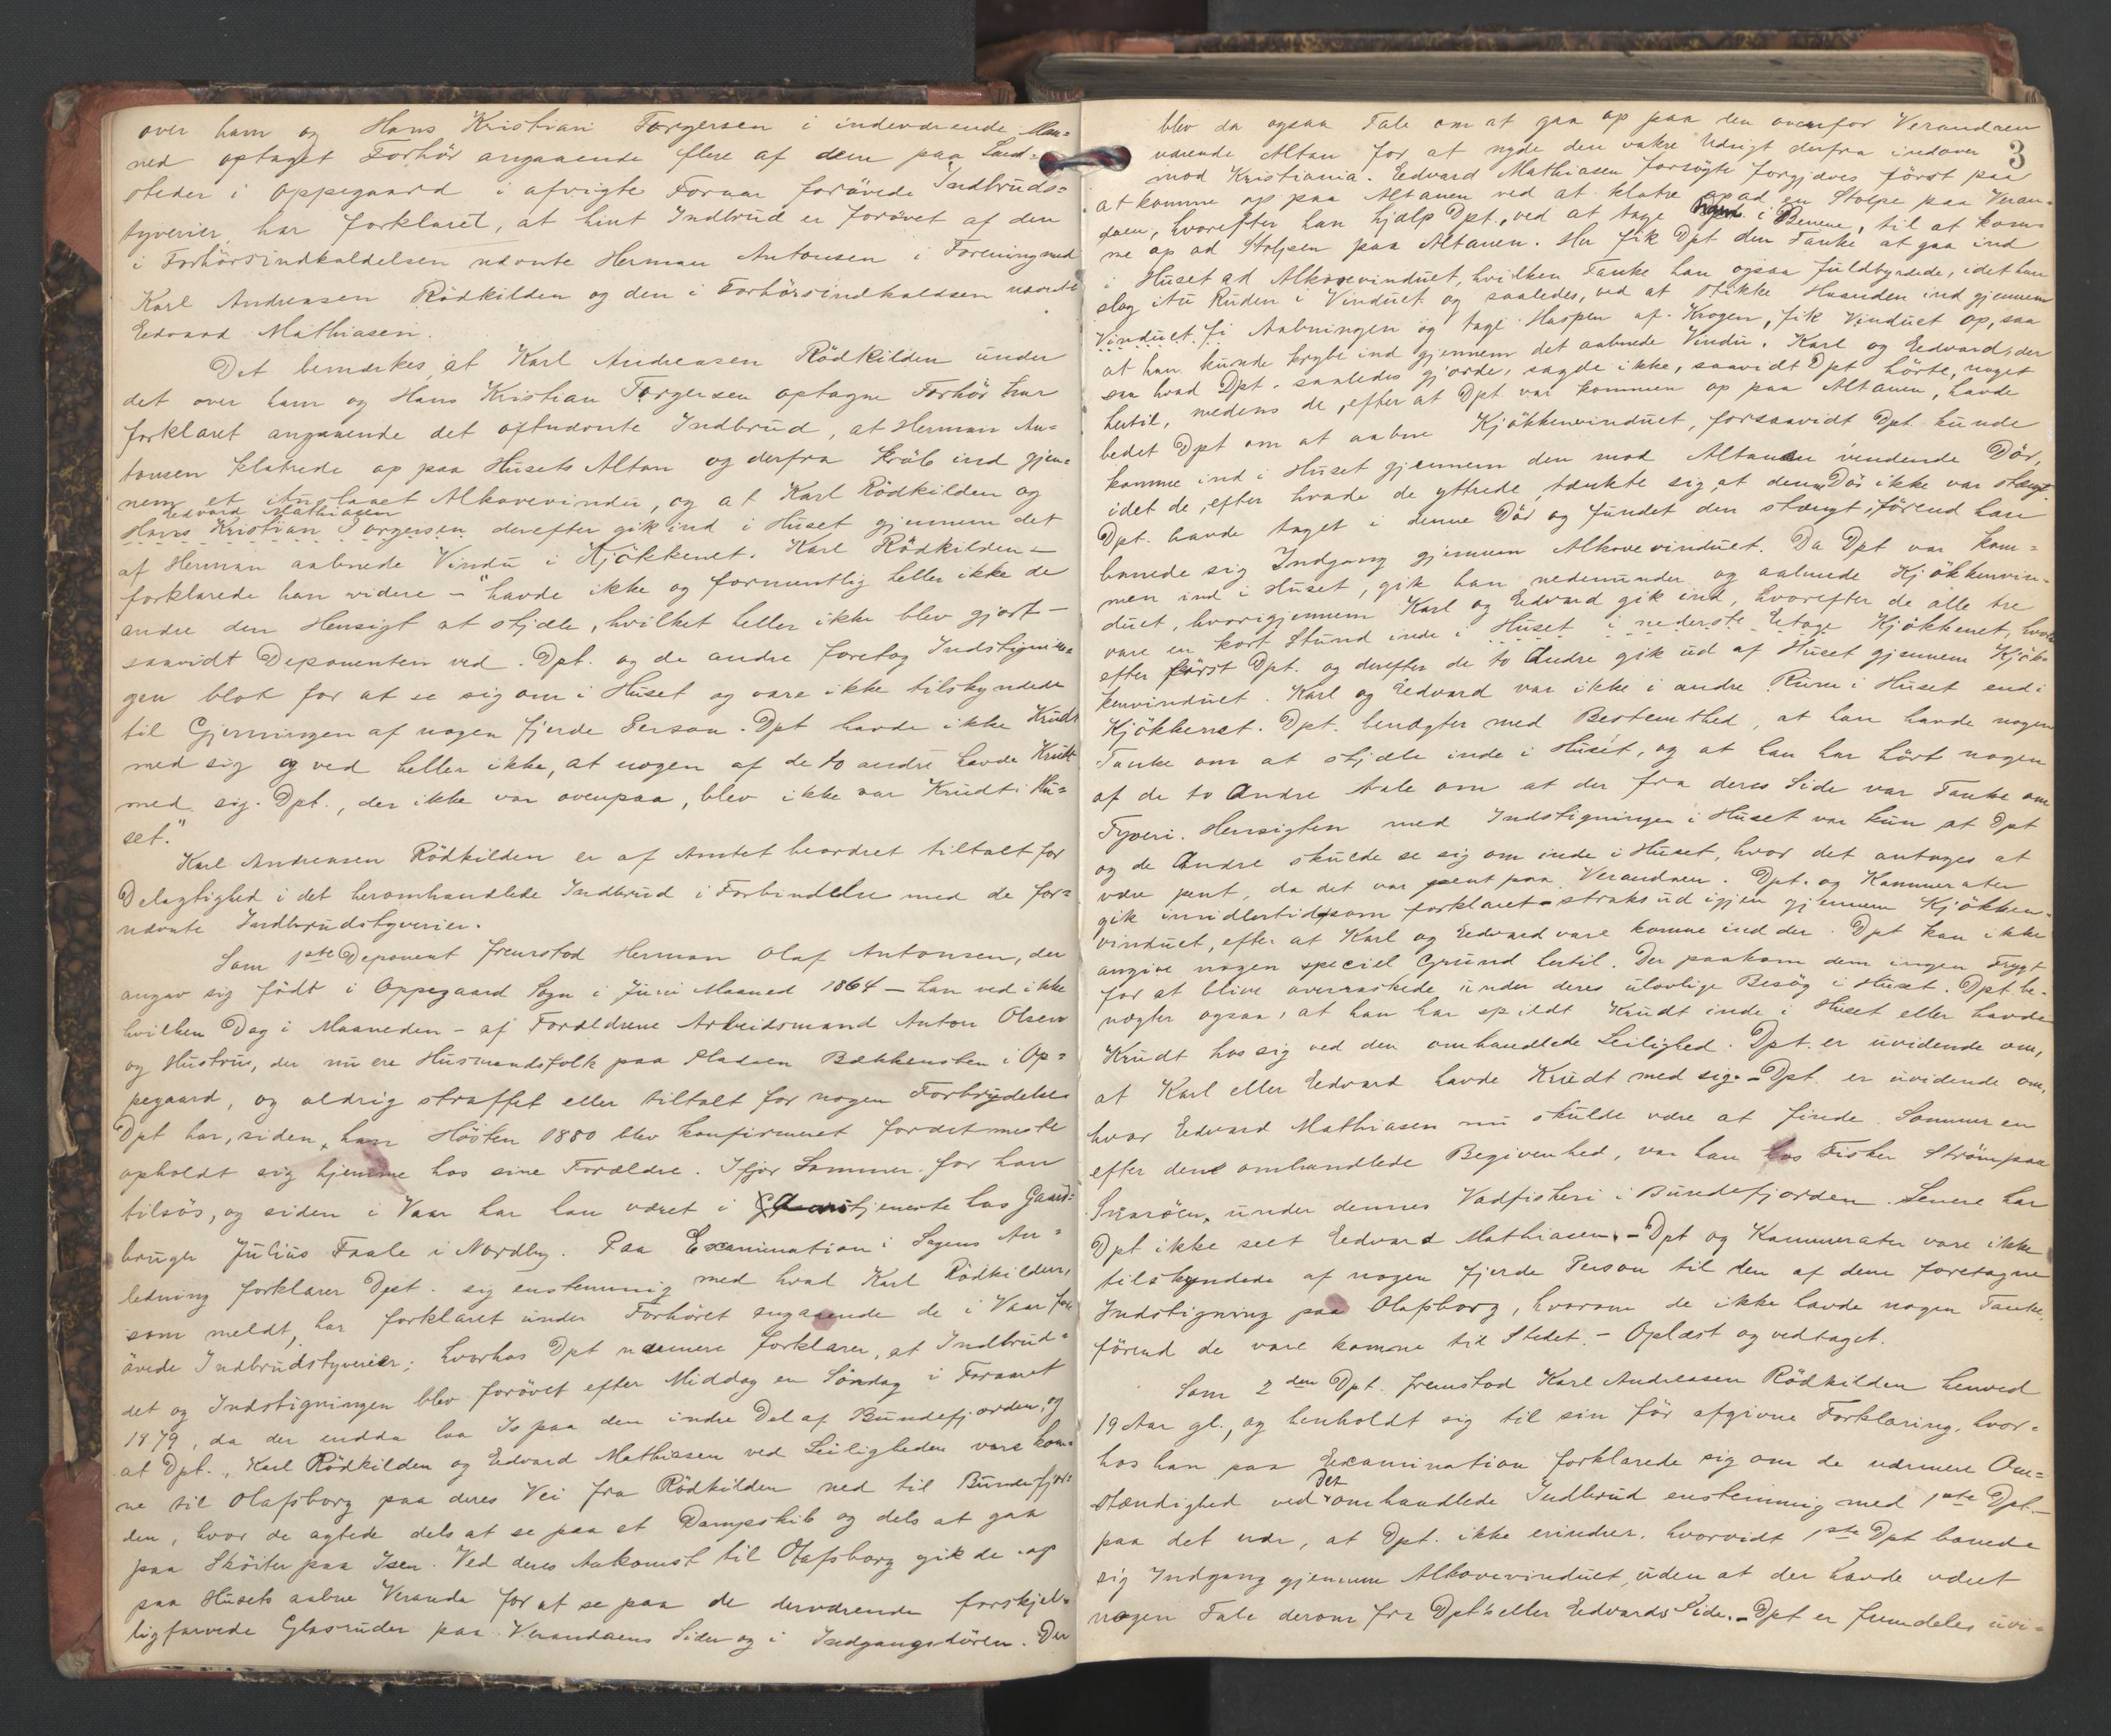 over ham og Hans Kristian Torgersen i indeværende Maa=
ned optaget Forhör angaaende flere af dem paa Land=
steder i Oppegaard i afvigte Foraar forövede Indbruds=
tyverier har forklaret, at hint Indbrud er forövet af den
i Forhörsindkaldelsen nævnte Herman Antonsen i Forening med
Karl Andreasen Rödkilden og den i Forhörsindkaldsen nævnte
Edvard Mathiasen.
Det bemærkes, at Karl Andreasen Rödkilden under
det over ham og Hans Kristian Torgersen optagne Forhör har
forklaret angaaende det oftnævnte Indbrud, at Herman An=
tonsen klatrede op paa Husets Altan og derfra kröb ind gjen=
nem et ituslaaet Alkovevindu, og at Karl Rödkilden og
Edvard Mathiasen
Hans Kristian Torgersen derefter gik ind i Huset gjennem det
af Herman aabnede Vindu i Kjökkenet. Karl Rödkilden –
forklarede han videre – "havde ikke og formentlig heller ikke de
andre den Hensigt at stjæle, hvilket heller ikke blev gjort –
saavidt Deponenten ved. Dpt. og de andre foretog Indstignin=
gen blot for at se sig om i Huset og vare ikke tilskyndede
til Gjerningen af nogen fjerde Person. Dpt havde ikke Krudt
med sig og ved heller ikke, at nogen af de to andre havde Krudt
med sig. Dpt., der ikke var ovenpaa, blev ikke var Krudt i Hu=
set."
Karl Andreasen Rödkilden er af Amtet beordret tiltalt for
Delagtighed i det heromhandlede Indbrud i Forbindelse med de for=
nævnte Indbrudstyverier.
Som 1ste Deponent fremstod Herman Olaf Antonsen, der
angav sig födt i Oppegaard Sogn i Juni Maaned 1864 – han ved ikke
hvilken Dag i Maaneden – af Forældrene Arbeidsmand Anton Olsen
og Hustru, der nu ere Husmandsfolk paa Pladsen Bækkensten i Op=
pegaard, og aldrig straffet eller tiltalt for nogen Forbrydelse
Dpt har, siden han Hösten 1880 blev konfirmeret fordetmeste
opholdt sig hjemme hos sine Forældre. Ifjor Sommer for han
tilsös, og siden i Vaar har han været i tjeneste hos Gaard=
bruger Julius Faale i Nordby. Paa Examination i Sagens An=
ledning forklarer Dpt. sig enstemmig med hvad Karl Rödkilden,
som meldt, har forklaret under Forhöret angaaende de i Vaar for=
övede Indbrudstyverier; hvorhos Dpt nærmere forklarer, at Indbrud=
det og Indstigningen blev forövet efter Middag en Söndag i Foraaret
1879, da der endda laa Is paa den indre Del af Bundefjorden, og
at Dpt., Karl Rödkilden og Edvard Mathiasen ved Leiligheden vare kom=
ne til Olafsborg paa deres Vei fra Rödkilden ned til Bundefjor=
den, hvor de agtede dels at se paa et Dampskib og dels at gaa
paa Sköiter paa Isen. Ved deres Ankomst til Olafsborg gik de op
paa Husets aabne Veranda for at se paa de derværende forskjel=
ligfarvede Glasruder paa Verandaens Sider og i Indgangsdören. Der
3
blev da ogsaa Tale om at gaa op paa den ovenfor Verandaen
værende Altan for at nyde den vakre Udsigt derfra indover
mod Kristiania. Edvard Mathiasen forsögte forgjæves först paa
at komme op paa Altanen ved at klatre opad en Stolpe paa Veran=
daen, hvorefter han hjalp Dpt., ved at tage ham i Benene, til at kom=
me op ad Stolpen paa Altanen. Her fik Dpt den Tanke at gaa ind
i Huset ad Alkovevinduet, hvilken Tanke han ogsaa fuldbyrdede, idet han
slog itu Ruden i Vinduet og saaledes, ved at stikke Haanden ind gjennem
Vinduet. Aabningen og tage Haspen af Krogen, fik Vinduet op, saa
at han kunde krybe ind gjennem det aabnede Vindu. Karl og Edvard, der
saa hvad Dpt. saaledes gjorde, sagde ikke, saavidt Dpt hörte, noget
hertil, medens de, efter at Dpt var kommen op paa Altanen, havde
bedet Dpt om at aabne Kjökkenvinduet, forsaavidt Dpt kunde
komme ind i Huset gjennem den mod Altanen vendende Dör,
idet de, efter hvad de yttrede, tænkte sig, at denne Dör ikke var stængt.
Dpt. havde taget i denne Dör og fundet den stængt, förend han
banede sig Indgang gjennem Alkovevinduet. Da Dpt var kom=
men ind i Huset, gik han nedenunder og aabnede Kjökkenvin=
duet, hvorigjennem Karl og Edvard gik ind, hvorefter de alle tre
vare en kort Stund inde i Huset i nederste Etage Kjökkenet, hvor
efter först Dpt. og derefter de to Andre gik ud af Huset gjennem Kjök=
kenvinduet. Karl og Edvard var ikke i andre Rum i Huset end i
Kjökkenet. Dpt. benægter med Bestemthed, at han havde nogen
Tanke om at stjæle inde i Huset, og at han har hört nogen
af de to Andre tale om at der fra deres Side var Tanke om
Tyveri. Hensigten med Indstigningen i Huset var kun at Dpt
og de Andre skulde se sig om inde i Huset, hvor det antoges at
være pent, da det var pent paa Verandaen. Dpt. og Kammerater
gik imidlertid, som forklaret – straks ud igjen gjennem Kjökken=
vinduet, efter at Karl og Edvard vare komne ind der. Dpt kan ikke
angive nogen speciel Grund hertil. Der paakom dem ingen Frygt
for at blive overraskede under deres ulovlige Besög i Huset. Dpt. be=
nægter ogsaa, at han har spildt Krudt inde i Huset eller havde
Krudt hos sig ved den omhandlede Leilighed. Dpt. er uvidende om,
at Karl eller Edvard havde Krudt med sig. – Dpt. er uvidende om,
hvor Edvard Mathiasen nu skulde være at finde. Sommeren
efter den omhandlede Begivenhed, var han hos Fisker Ström paa
Svarören, under dennes Vadfiskeri i Bundefjorden. Senere har
Dpt ikke seet Edvard Mathiasen. – Dpt og Kammerater vare ikke
tilskyndede af nogen fjerde Person til den af dem foretagne
Indstigning paa Olafsborg, hvorom de ikke havde nogen Tanke,
förend de vare komne til Stedet. – Oplæst og vedtaget.
Som 2den Dpt. fremstod Karl Andreasen Rödkilden henved
19 Aar gl., og henholdt sig til sin för afgivne Forklaring, hvor=
hos han paa Examination forklarede sig om de nærmere Om=
stændighed ved det omhandlede Indbrud enstemmig med 1ste Dpt. –
paa det nær, at Dpt. ikke erindrer, hvorvidt 1ste Dpt banede
sig Indgang gjennem Alkovevinduet, uden at der havde været
nogen Tale derom fra Dpt's eller Edvards Side. – Dpt er fremdeles uvi=